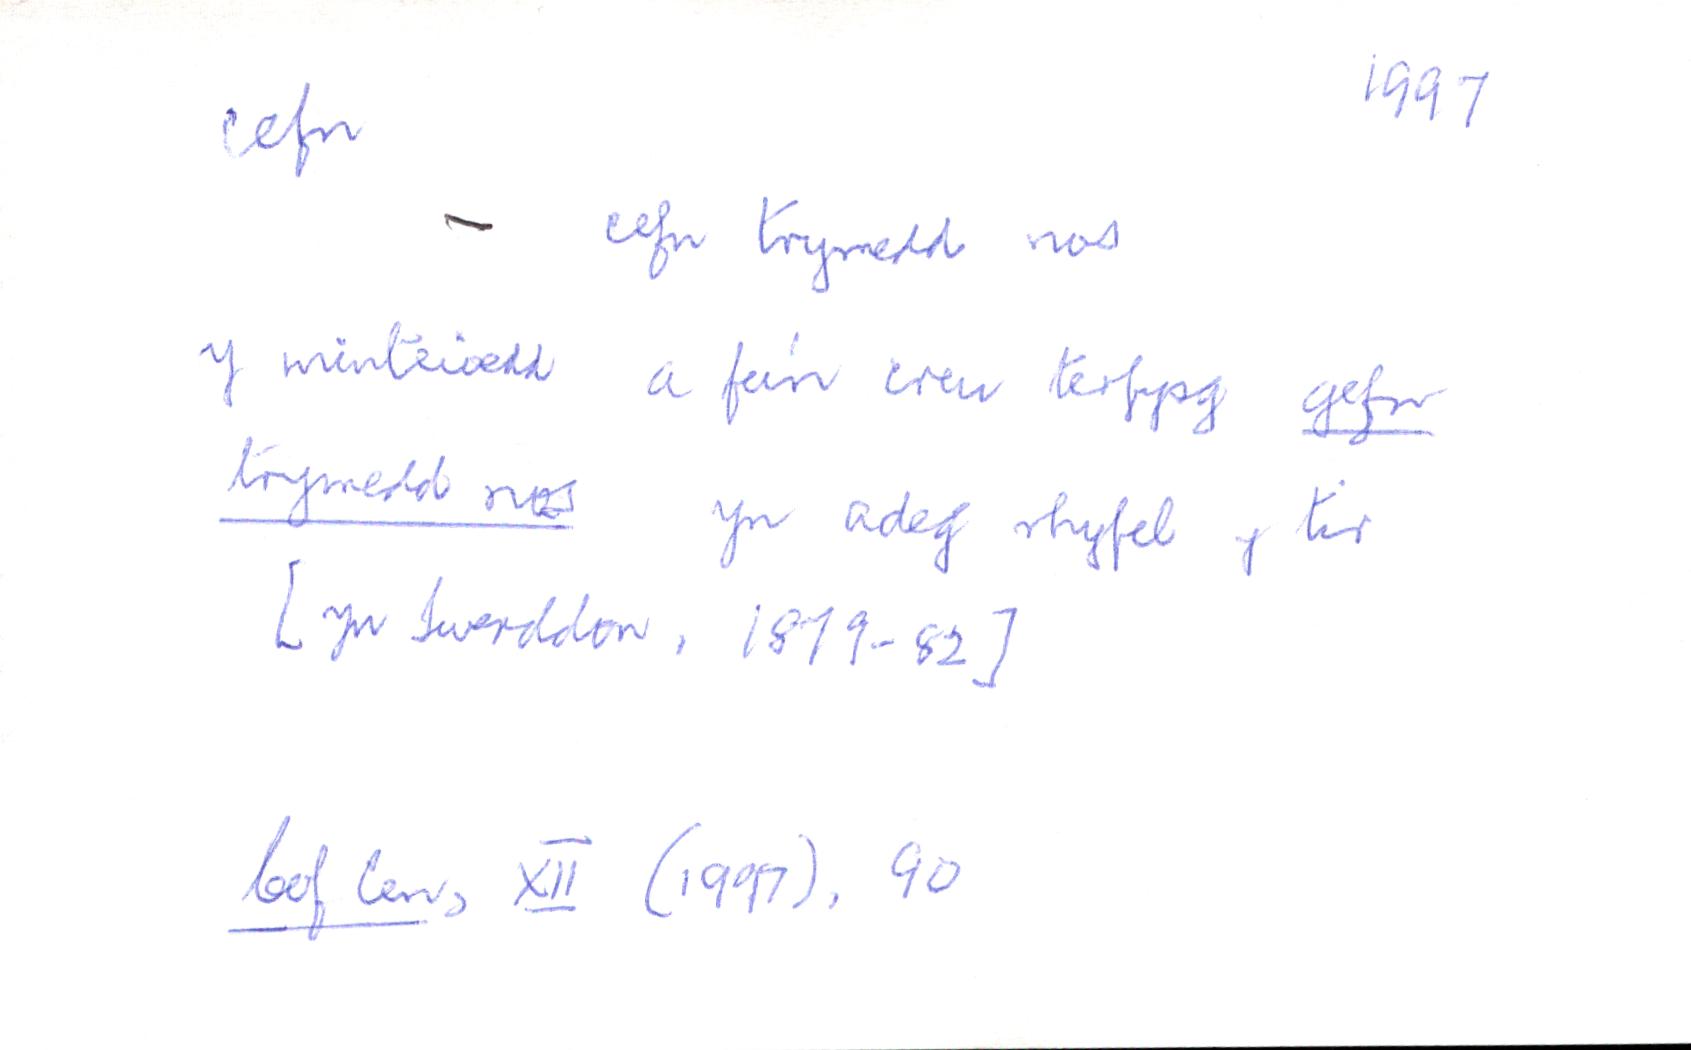 cefn 1997
– cefn trymedd nos
y minteioedd a fu'n creu terfysg gefn
trymedd nos yn adeg rhyfel y tir
[yn Iwerddon, 1879-82]
Cof Cen, XII (1997), 90